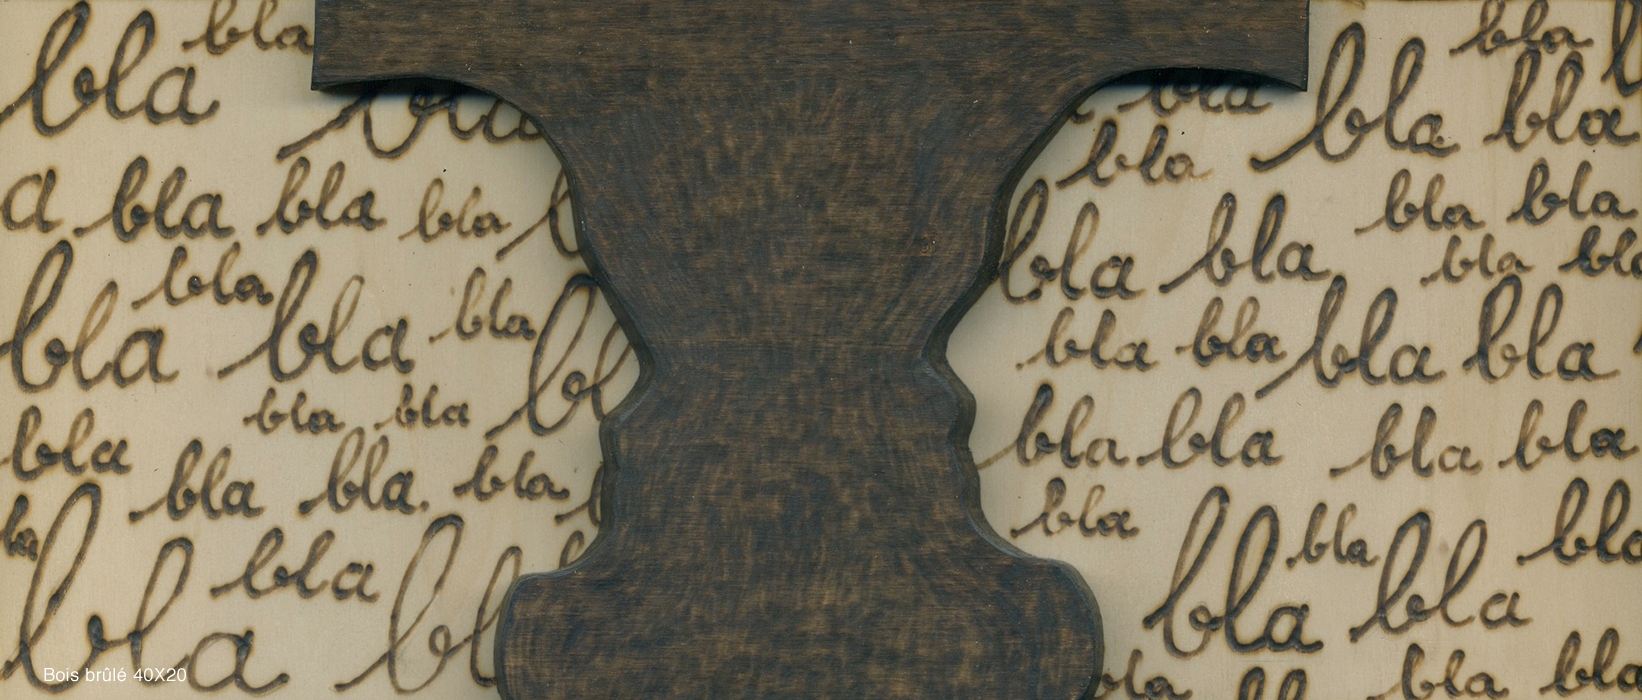 bla bla
bla bla
bla
bla bla
bla bla
bla
a bla bla bla
bla bla
bla bla
bla
bla bla
bla bla bla
bla bla bla bla
bla bla
bla bla bla bla
bla
bla bla bla
bla
bla
bla bla
bla
bla bla
bla
bla bla
Bois brûlé 40X20